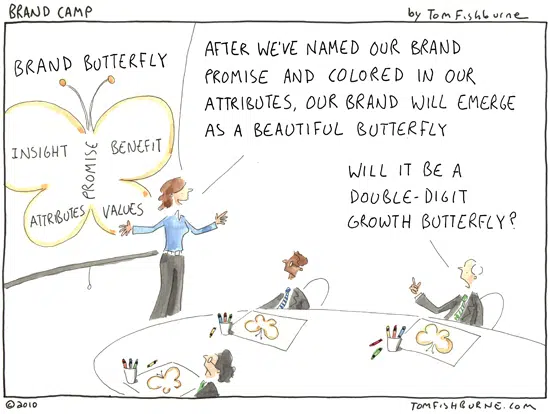 BRAND CAMP
by Tom Fishburne
BRAND BUTTERFLY
INSIGHT
PROMISE
BENEFIT
ATTRIBUTES
VALUES
AFTER WE'VE NAMED OUR BRAND
PROMISE AND COLORED IN OUR
ATTRIBUTES, OUR BRAND WILL EMERGE
AS A BEAUTIFUL BUTTERFLY
WILL IT BE A
DOUBLE-DIGIT
GROWTH BUTTERFLY?
©2010
TOMFISHBURNE.COM